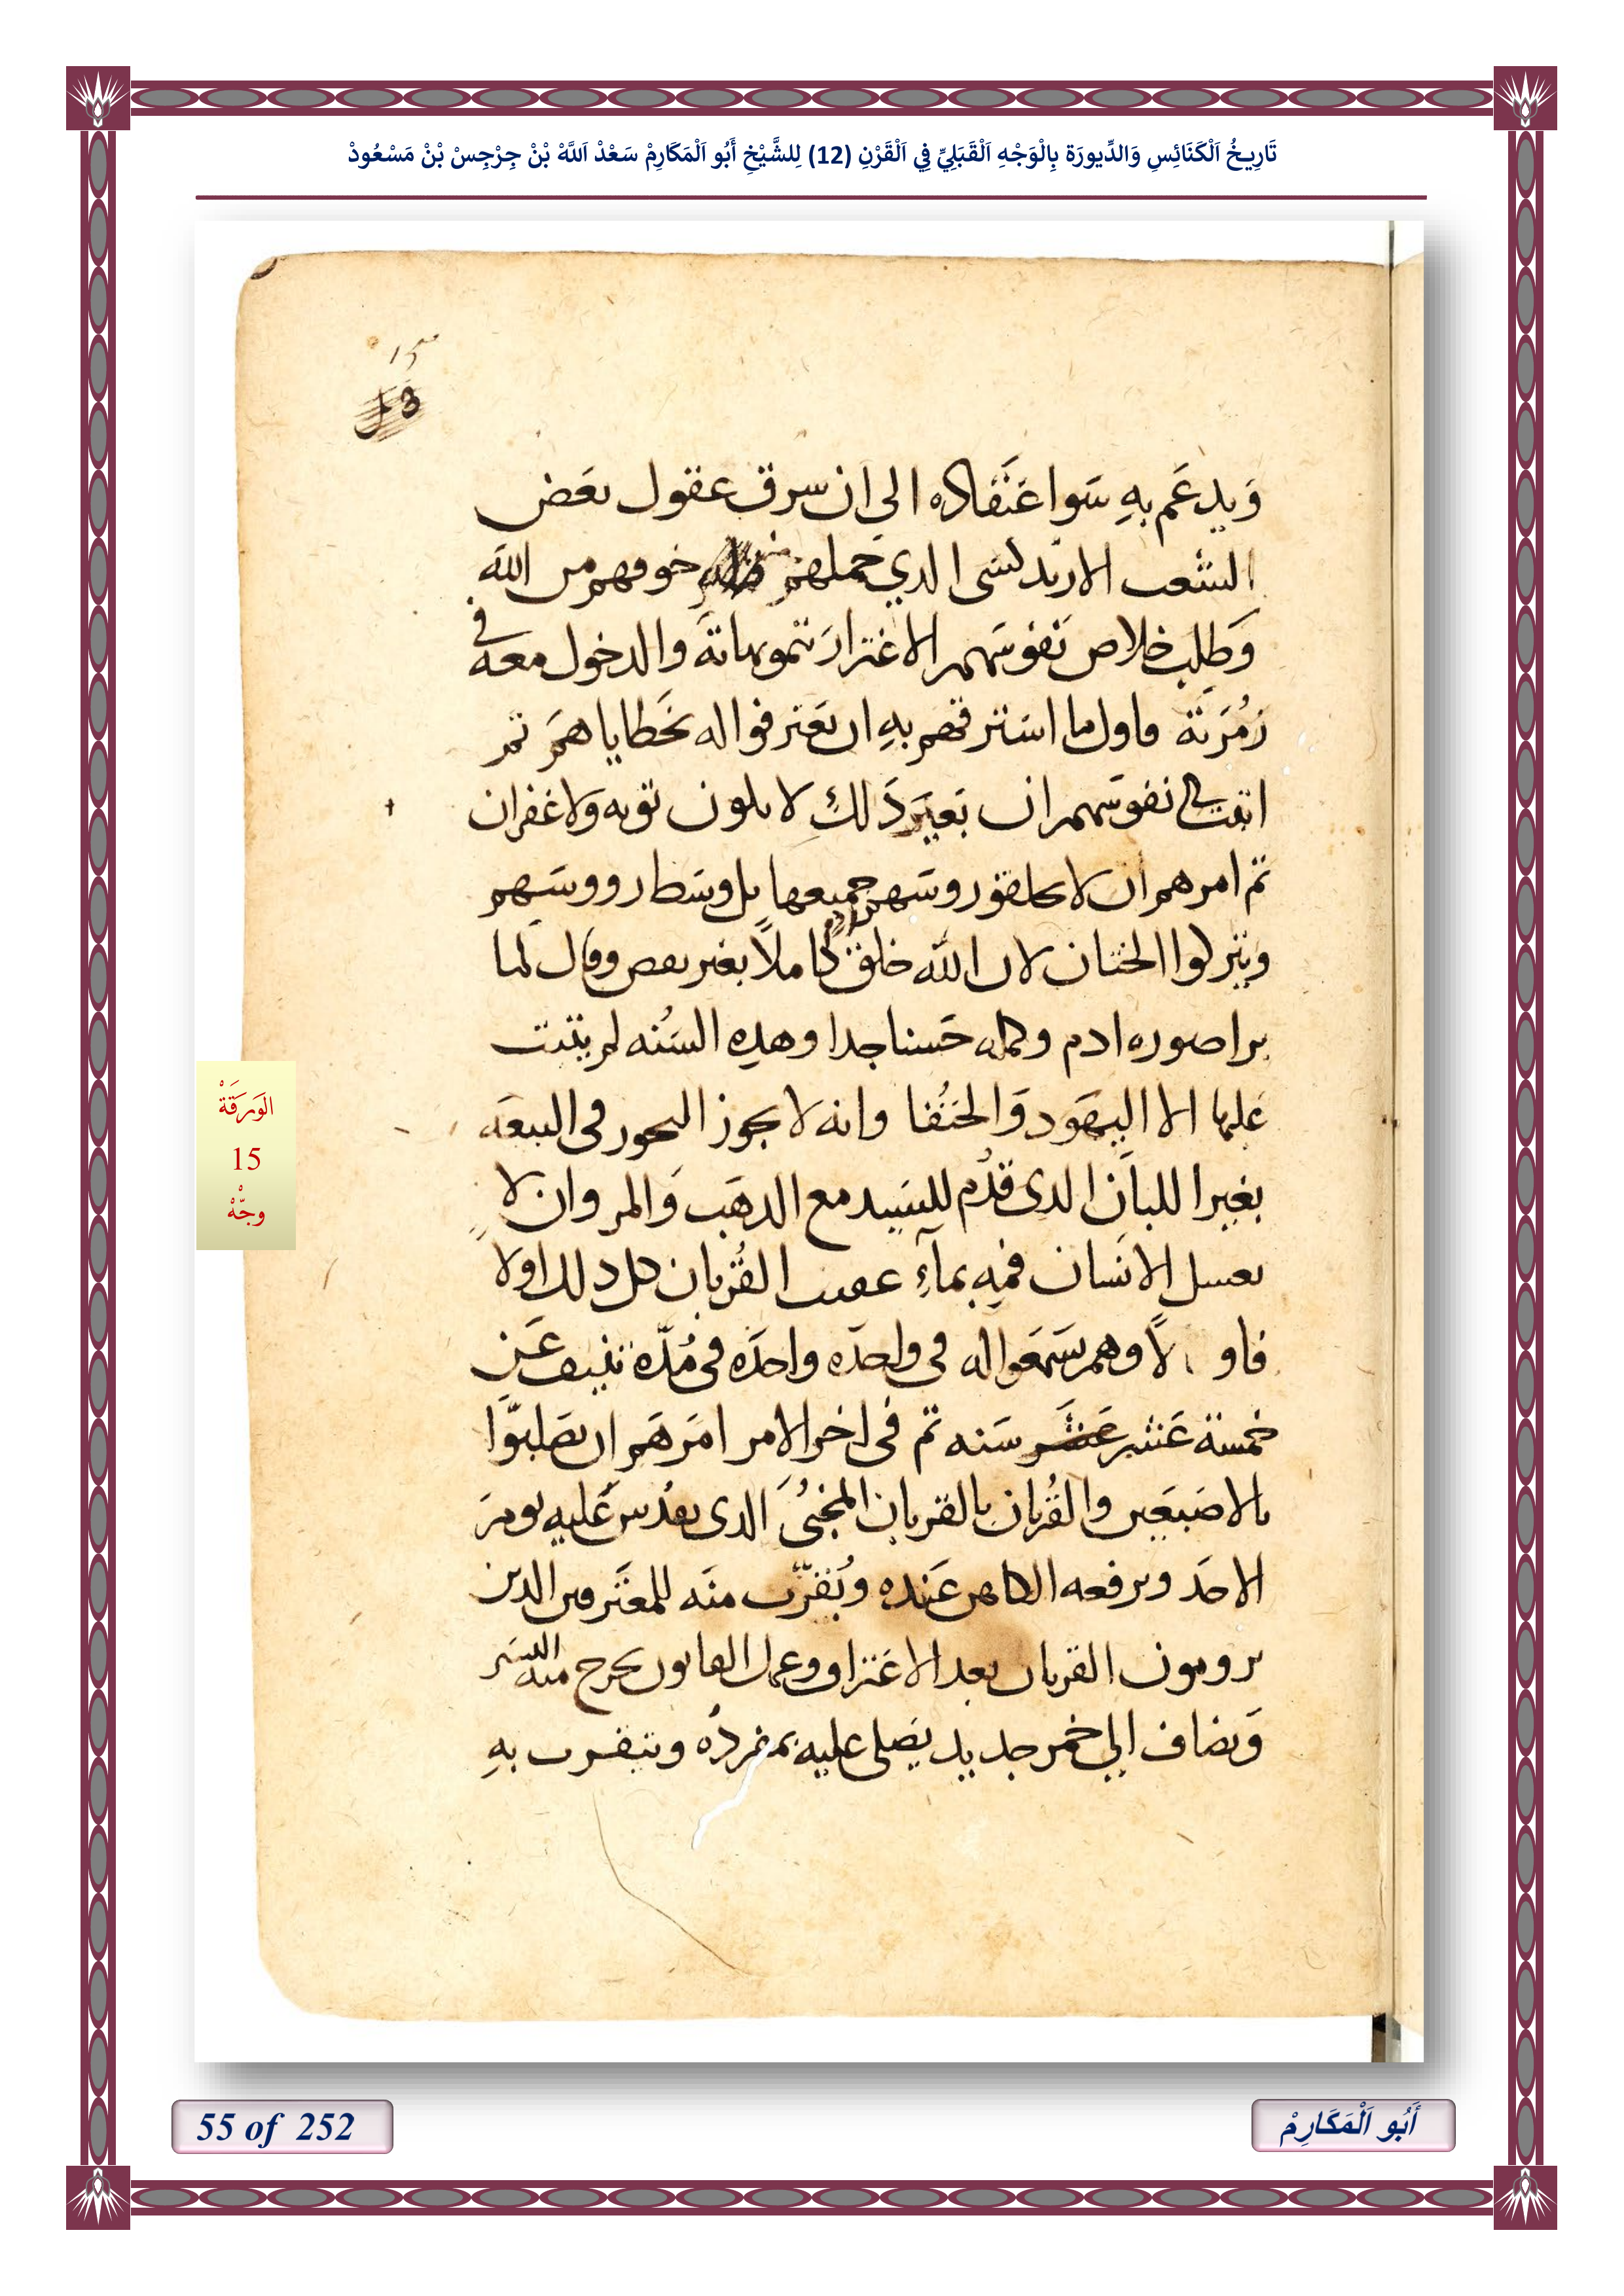 تَارِيخُ اَلْكَنَائِسِ وَالدِّيورَة بِالْوَجْهِ اَلْقَبَلِيِّ فِي اَلْقَرْنِ (12) لِلشَّيْخِ أَبُو اَلْمَكَارِمْ سَعْدْ اَللَّهْ بْنْ جِرْجِسْ بْنْ مَسْعُودْ
15
وَيدعَم بِهِ سَوا عَتَقاده الى ان سرق عقول بعَض
الشعب الارتدلسى الدي حملهم خوفهم من الله
وَطلب خلاص نَفوسَهم الاغترارَ بتموياتة والدخول معه في
زُمرَتة فاول ما استرقهم بهِ ان يعَترفوا له بخَطاياهمَ تم
اتبت في نفوسَهم ان بَغيَر دَلكِ لا يلون توبه وَلا غفران
تم امرهم ان لا يحلقو روسَهم جميعها بل وسَط رووسَهم
ويتركوا الختان لان الله خلق ادم كاملاً بغير نقص وقال لما
برا صوره ادم وكمله حَسنا جدا وهده السَنُه لم يتبت
عَليها الا اليهَود وَالحَنُفا وانه لا يجوز البخور فى البيعَه
بغير اللبان الدى قدُم للسَيد مع الدهَب وَالمر وان لا
يغسل الانَسان فمِه بمآءِ عقيب القُربان كل دلك اولا
فاولاً وهم يسَمعَوا له فى واحدَه واحدَه فى مُدّة تنيف عَن
خمسة عَشر سَنه تم فى اخر الامر امَرهَم ان يصَلبوّا
بالاصَبعَين والقُربان بالقربان المخبىُ الدى يقدُس عَليه يومَ
الاحَد ويرفعه الكاهن عَنده وُيَقرّب منَه للمعَترفين الدين
يرومون القربان بعد الاعَتراف وعمل القانون يخرج منه اليسَير
وَيضاف الي خمر جديد يصَلى عليه بمفردُه ويتقرب بهِ
الوَرَقَةْ
15
وجّهْ
55 of 252
أَبُو اَلْمَكَارِمْ